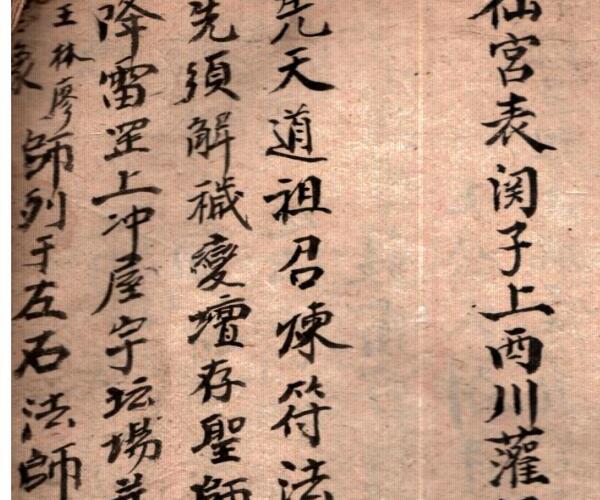 仙宮表関子上西川灌
先天道祖召煉符法
先須解穢變壇存聖師
降雷罡上冲屋宇坛場
王林廖師列于左石法師